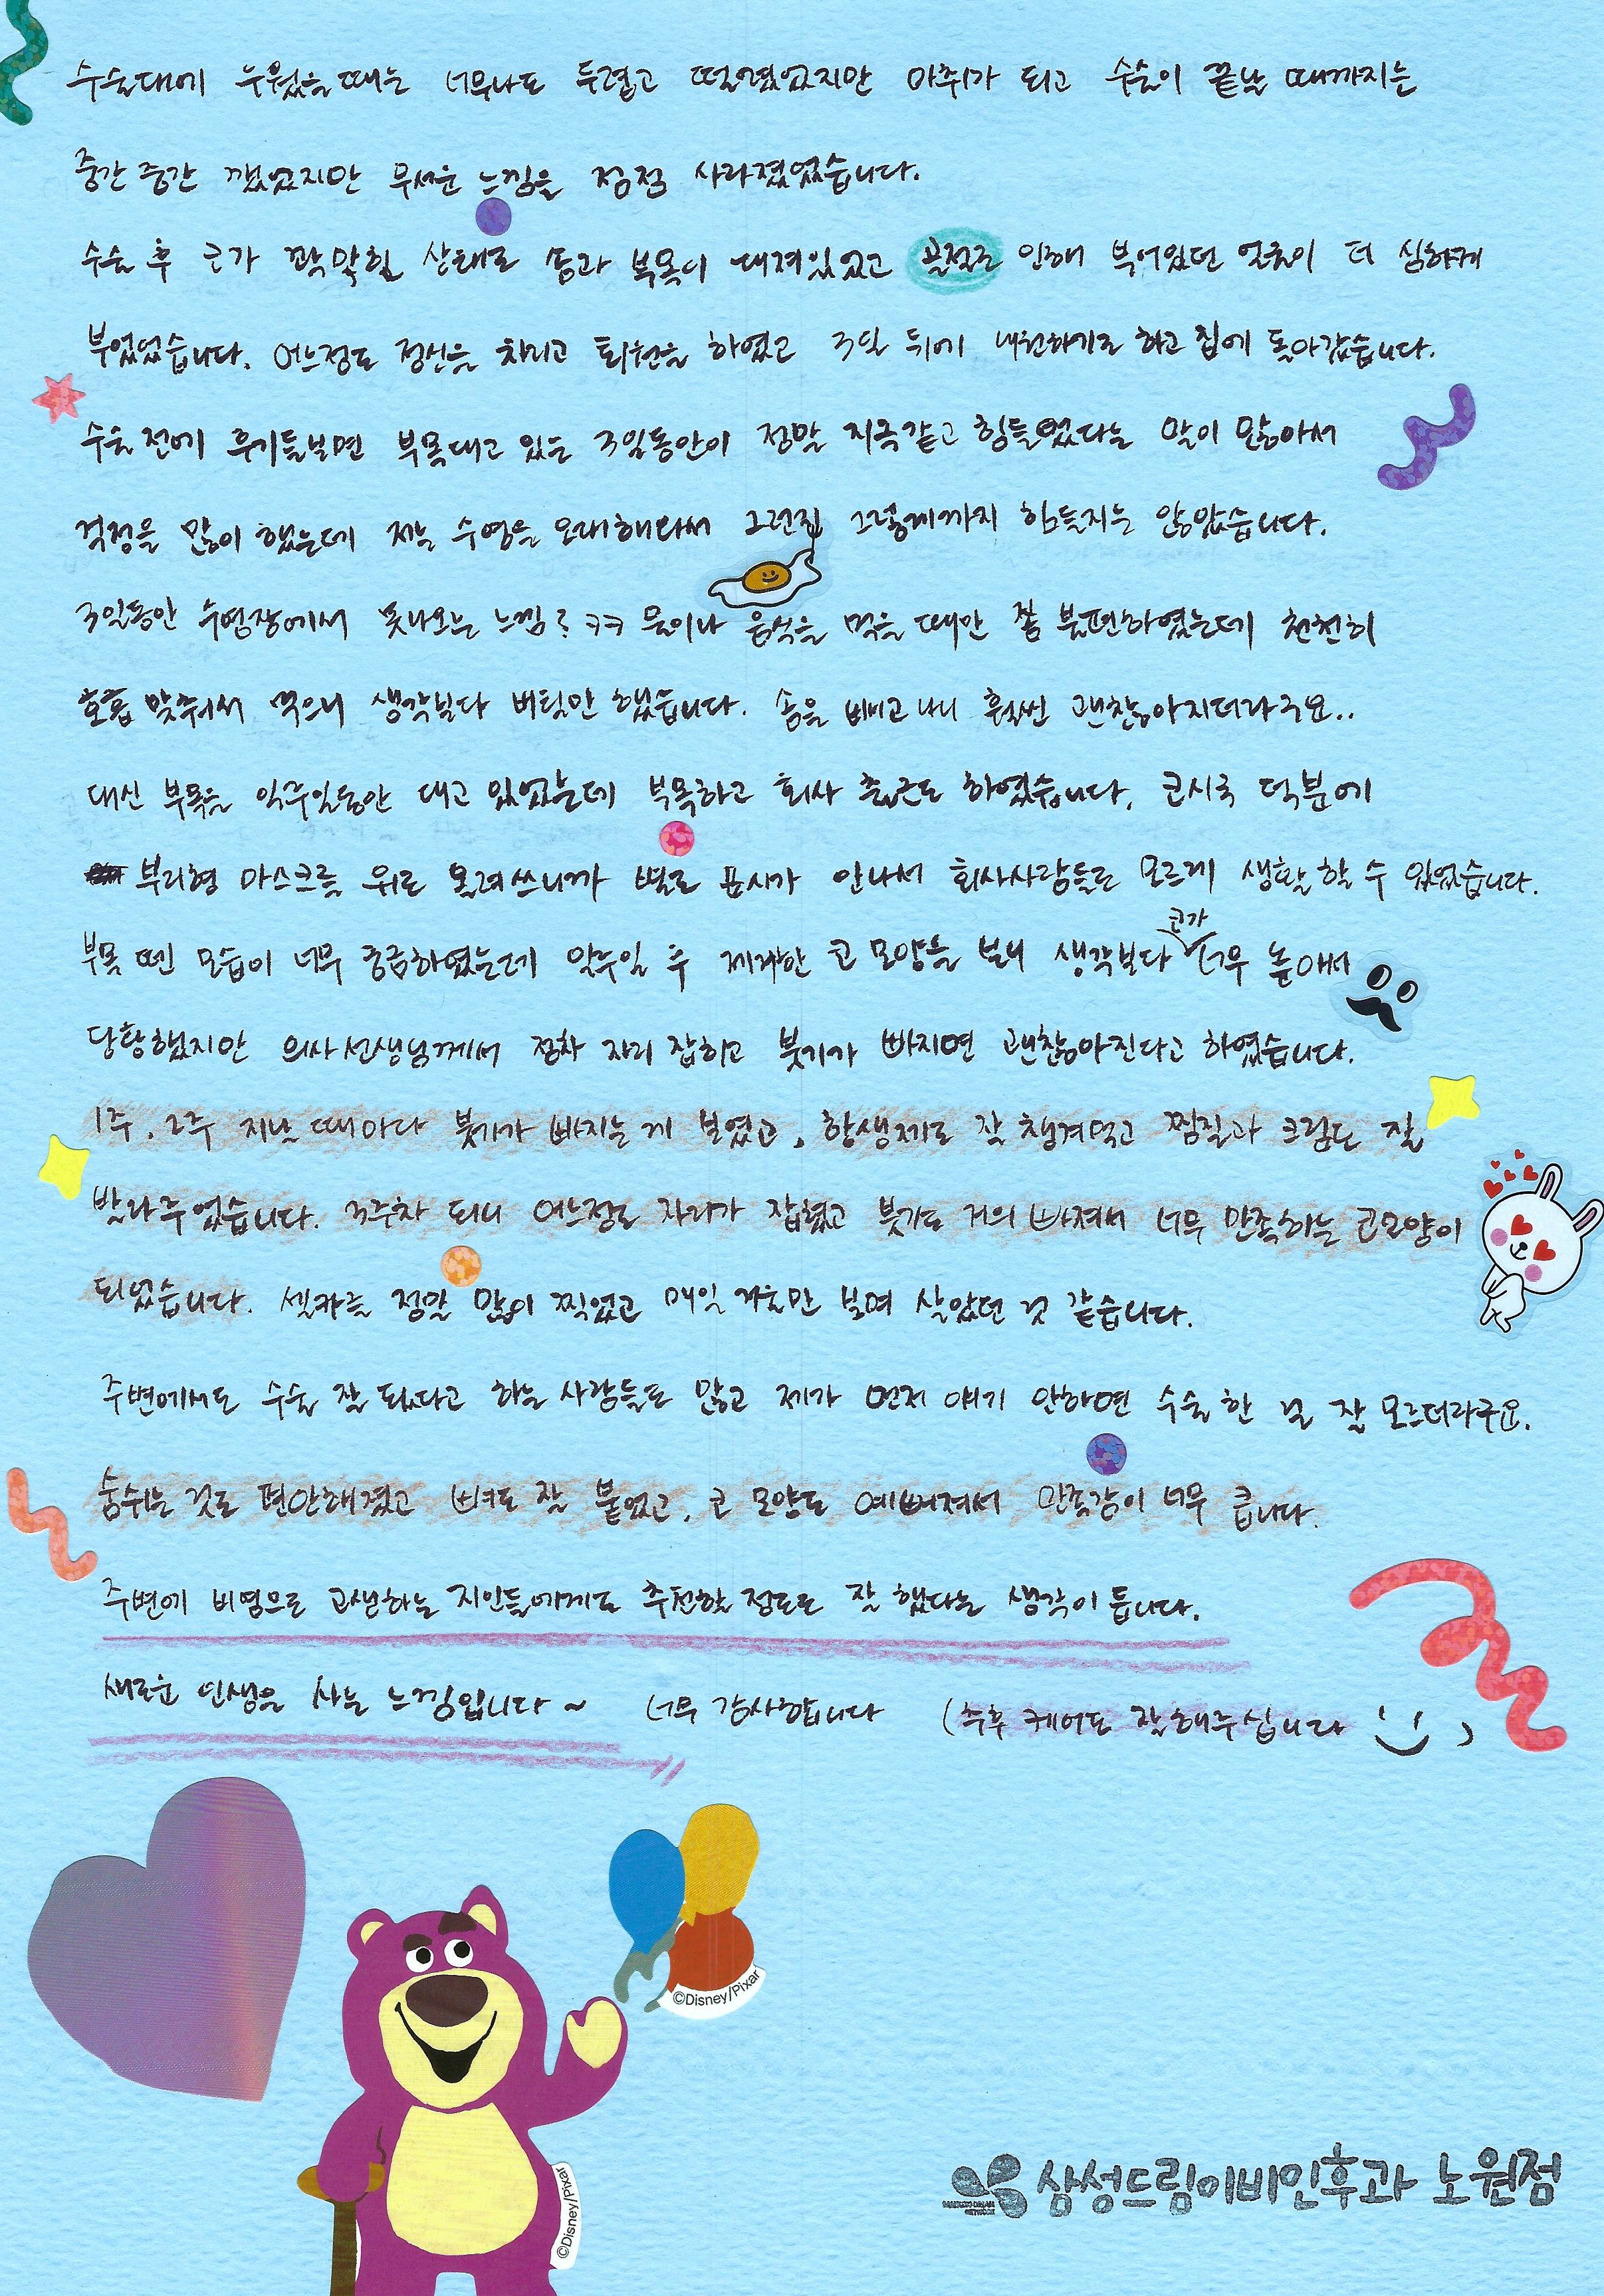 수술대에 누웠을때는 너무나도 두렵고 떨렸었지만 마취가 되고 수술이 끝날 때까지는
중간중간 깼었지만 무서운 느낌은 점점 사라졌었습니다.
수술 후 코가 꽉 막힌 상태로 솜과 부목이 대져있었고 골절로 인해 부어있던 얼굴이 더 심하게
부었었습니다. 어느정도 정신을 차리고 퇴원을 하였고 3일 뒤에 내원하기로 하고 집에 돌아갔습니다.
수술 전에 후기들보면 부목대고 있는 3일동안이 정말 지옥같고 힘들었다는 말이 많아서
걱정을 많이 했는데 저는 수영을 오래해와서 그런지 그렇게까지 힘들지는 않았습니다.
3일동안 수영장에서 못나오는 느낌? ㅋㅋ 물이나 음식을 먹을 때만 쫌 불편하였는데 천천히
호흡 맞춰서 먹으니 생각보다 버틸만 했습니다. 솜을 빼고 나니 훨씬 괜찮아지더라구요..
대신 부목을 일주일동안 대고 있었는데 부목하고 회사 출근도 하였습니다. 코시국 덕분에
부리형 마스크를 위로 올려쓰니까 별로 표시가 안나서 회사사람들도 모르게 생활할 수 있었습니다.
부목 뗀 모습이 너무 궁금하였는데 일주일 후 제거한 코 모양을 보니 생각보다 코가 너무 높아서
당황했지만 의사선생님께서 점차 자리 잡히고 붓기가 빠지면 괜찮아진다고 하였습니다.
1주, 2주 지날 때마다 붓기가 빠지는게 보였고, 항생제도 잘 챙겨먹고 찜질과 크림도 잘
발라주었습니다. 3주차 되니 어느정도 자리가 잡혔고 붓기도 거의 빠져서 너무 만족하는 코모양이
되었습니다. 셀카를 정말 많이 찍었고 매일 거울만 보며 살았던 것 같습니다.
주변에서도 수술 잘 되었다고 하는 사람들도 많고 제가 먼저 얘기 안하면 수술한 널 잘 모르더라구요.
숨쉬는 것도 편안해졌고 뼈도 잘 붙었고, 코 모양도 예뻐져서 만족감이 너무 큽니다.
주변에 비염으로 고생하는 지인들에게도 추천할 정도로 잘 했다는 생각이 듭니다.
새로운 인생을 사는 느낌입니다~ 너무 감사합니다 (추후 케어도 잘해주십니다 :)
©Disney/Pixar
©Disney/Pixar
삼성드림이비인후과 노원점